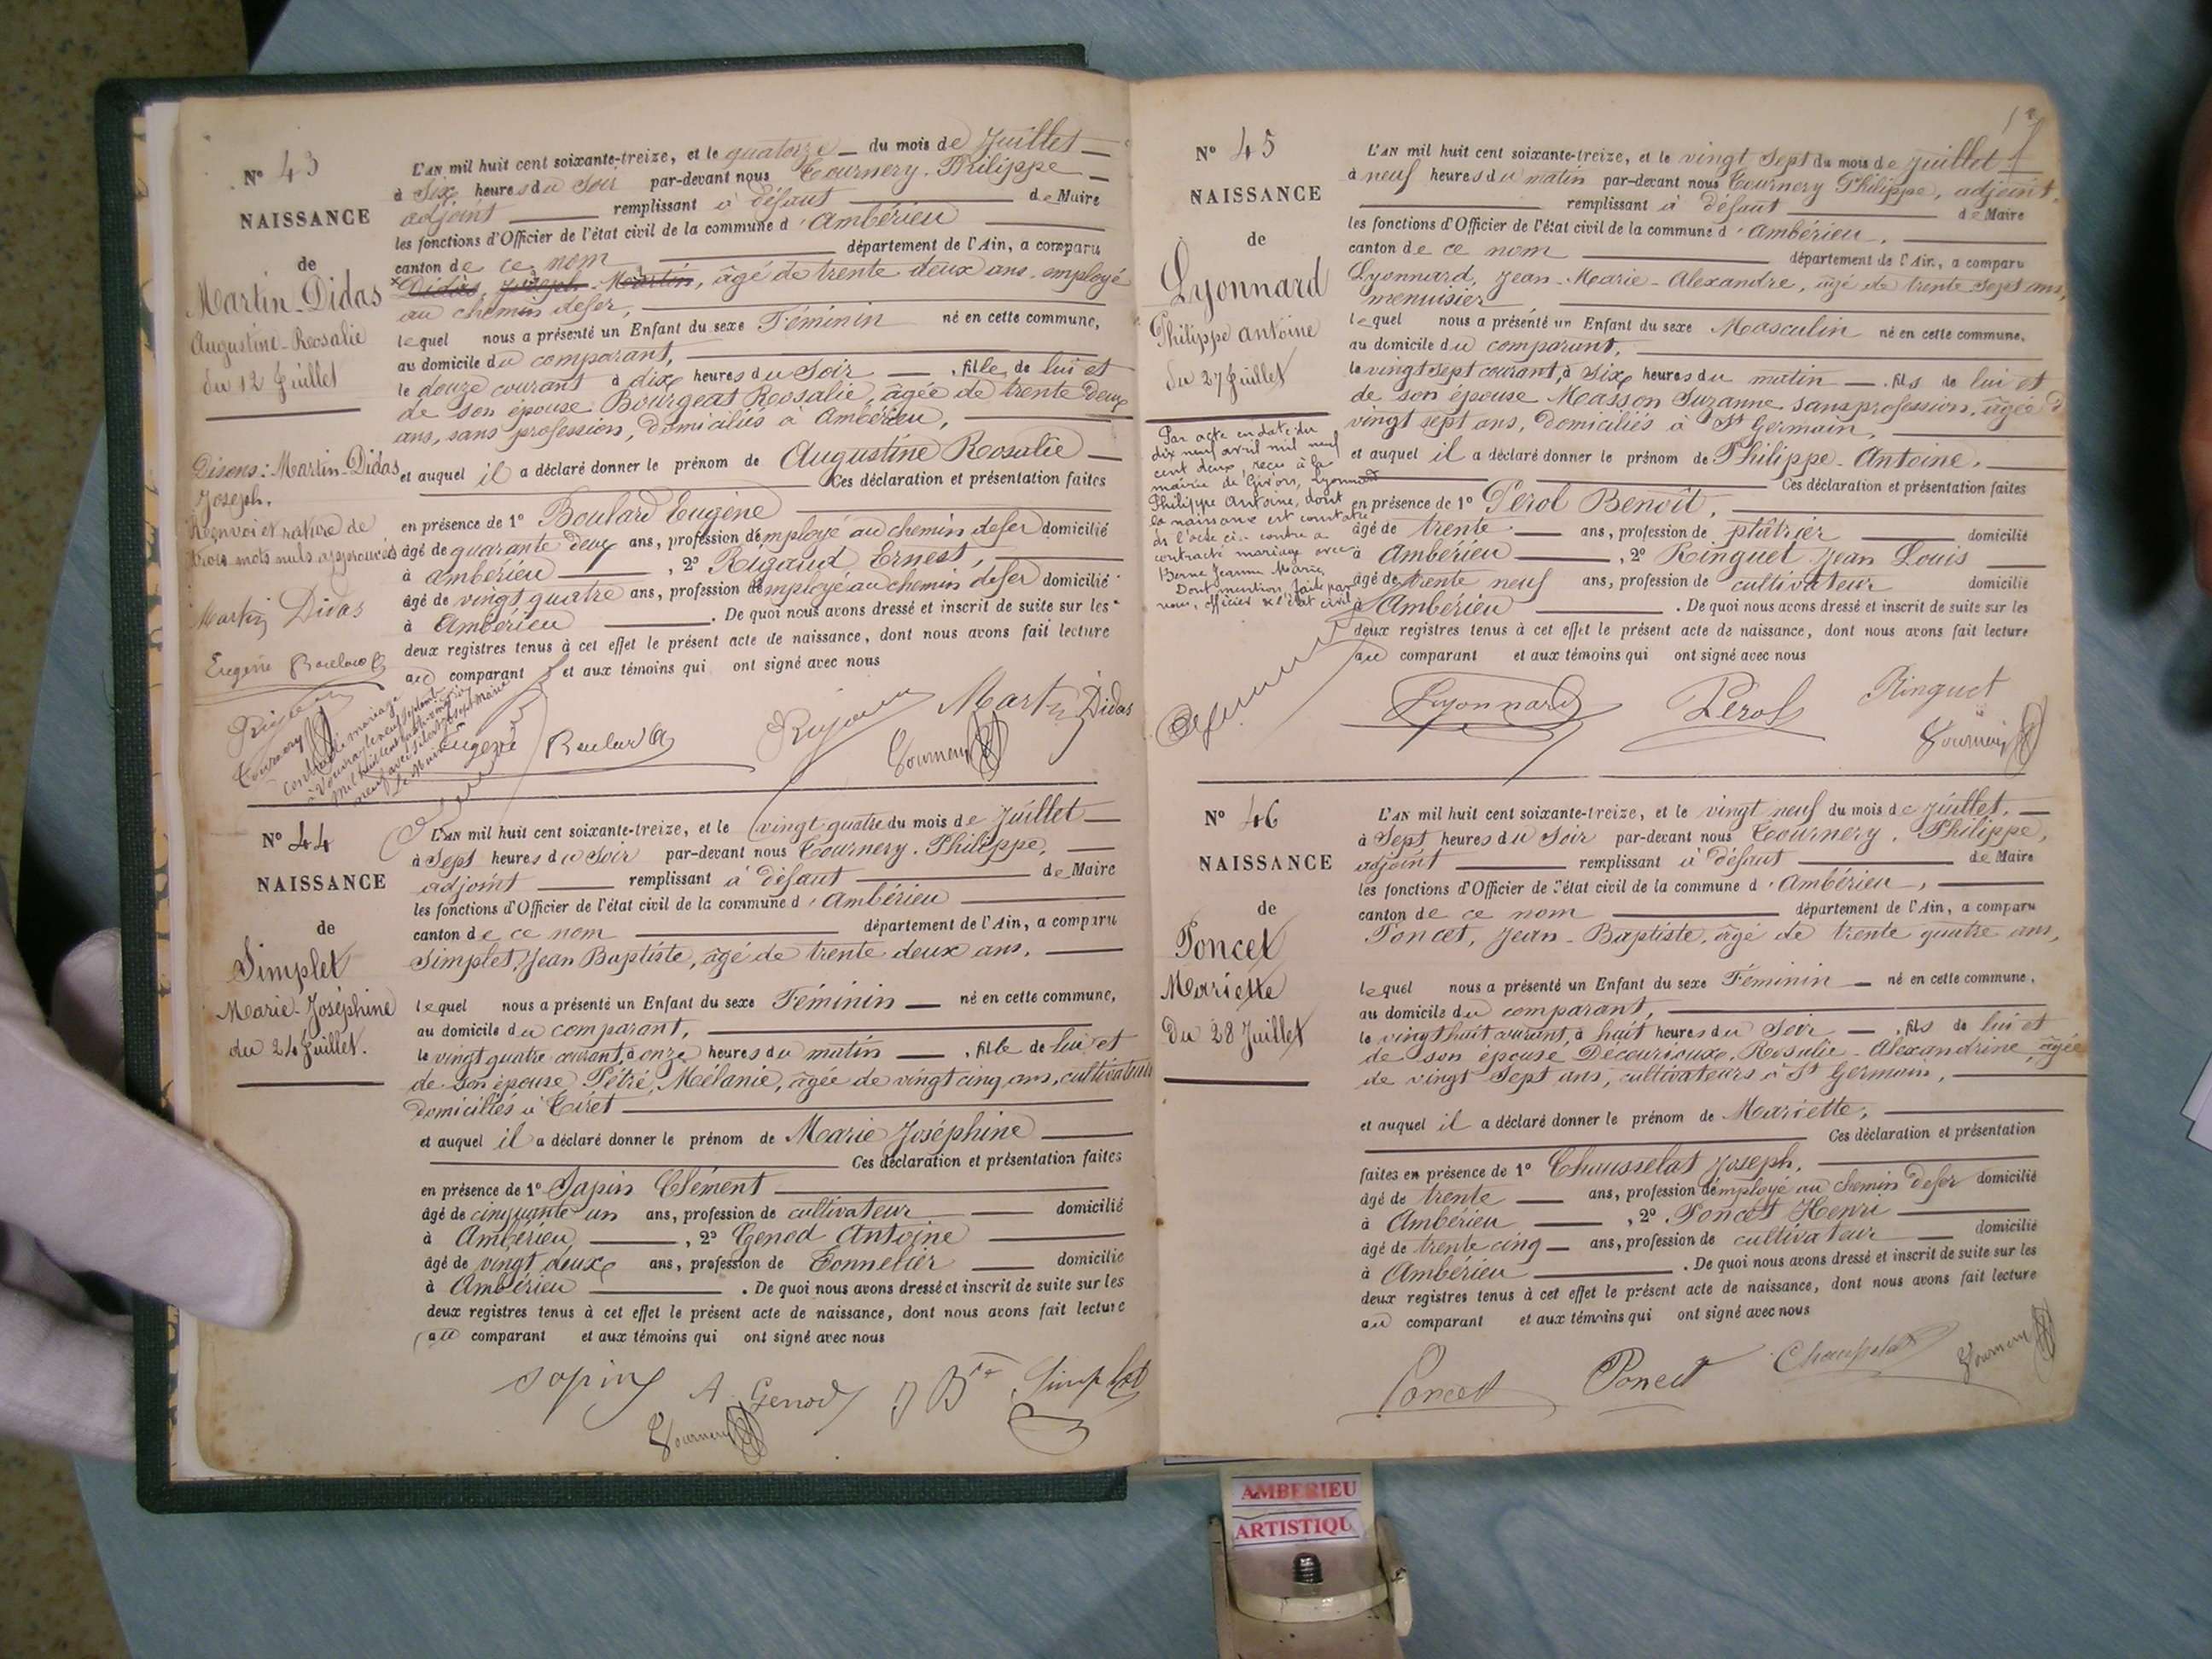 N° 43
NAISSANCE
de
Martin-Didas
Augustine-Rosalie
du 12 Juillet
Disons: Martin-Didas
Joseph.
Renvoi et rature de
trois mots nuls approuvés
Martin Didas
Eugène Boulard
Tournery
L'AN mil huit cent soixante-treize, et le quatorze du mois de Juillet
à Six heures du Soir par-devant nous Tournery. Philippe
adjoint remplissant à défaut de Maire
les fonctions d'Officier de l'état civil de la commune d'Ambérieu
canton de ce nom département de l'Ain, a comparu
Didas, Joseph-Martin, âgé de trente deux ans, employé
au chemin de fer,
lequel nous a présenté un Enfant du sexe Féminin né en cette commune,
au domicile du comparant,
le douze courant à dix heures du Soir , fille de lui et
de son épouse Bourgeat Rosalie, âgée de trente deux
ans, sans profession, domiciliés à Ambérieu,
et auquel il a déclaré donner le prénom de Augustine Rosalie
Ces déclaration et présentation faites
en présence de 1° Boulard Eugène
âgé de quarante deux ans, profession d'employé au chemin de fer domicilié
à ambérieu , 2° Rigaud Ernest,
âgé de vingt quatre ans, profession d'employé au chemin de fer domicilié
à Ambérieu . De quoi nous avons dressé et inscrit de suite sur les
deux registres tenus à cet effet le présent acte de naissance, dont nous avons fait lecture
au comparant et aux témoins qui ont signé avec nous
Martin Didas
Eugène Boulard
Tournery
N° 44
NAISSANCE
de
Simplet
Marie-Joséphine
du 24 Juillet.
L'AN mil huit cent soixante-treize, et le vingt quatre du mois de Juillet
à Sept heures du Soir par-devant nous Tournery. Philippe,
adjoint remplissant à défaut de Maire
les fonctions d'Officier de l'état civil de la commune d'Ambérieu
canton de ce nom département de l'Ain, a comparu
Simplet, Jean Baptiste, âgé de trente deux ans,
lequel nous a présenté un Enfant du sexe Féminin né en cette commune,
au domicile du comparant,
le vingt quatre courant, à onze heures du matin , fille de lui et
de son épouse Pétré, Mélanie, âgée de vingt cinq ans, cultivateurs
domiciliés à Tiret
et auquel il a déclaré donner le prénom de Marie Joséphine
Ces déclaration et présentation faites
en présence de 1° Sapin Clément
âgé de cinquante un ans, profession de cultivateur domicilié
à Ambérieu , 2° Genod Antoine
âgé de vingt deux ans, profession de Tonnelier domicilié
à Ambérieu . De quoi nous avons dressé et inscrit de suite sur les
deux registres tenus à cet effet le présent acte de naissance, dont nous avons fait lecture
au comparant et aux témoins qui ont signé avec nous
Sapin A. Genod J Bte Simplet
Tournery
N° 45
NAISSANCE
de
Lyonnard
Philippe antoine
du 27 Juillet
Par acte en date du
dix neuf avril mil neuf
cent deux, reçu à la
mairie de Givors, Lyonnard
Philippe Antoine, dont
la naissance est constatée
ds l'acte ci-contre a
contracté mariage avec
Berne Jeanne Marie
Dont mention faite par
nous, officier de l'état civil
L'AN mil huit cent soixante-treize, et le vingt Sept du mois de Juillet
à neuf heures du matin par-devant nous Tournery Philippe, adjoint
remplissant à défaut de Maire
les fonctions d'Officier de l'état civil de la commune d'Ambérieu,
canton de ce nom département de l'Ain, a comparu
Lyonnard, Jean-Marie-Alexandre, âgé de trente Sept ans,
menuisier
lequel nous a présenté un Enfant du sexe Masculin né en cette commune,
au domicile du comparant,
le vingt sept courant, à Six heures du matin , fils de lui et
de son épouse Masson Suzanne, sans profession, âgée d
vingt sept ans, domiciliés à St Germain,
et auquel il a déclaré donner le prénom de Philippe-Antoine,
Ces déclaration et présentation faites
en présence de 1° Perol Benoît,
âgé de trente ans, profession de plâtrier domicilié
à Ambérieu , 2° Ringuet Jean Louis
âgé de trente neuf ans, profession de cultivateur domicilié
à Ambérieu . De quoi nous avons dressé et inscrit de suite sur les
deux registres tenus à cet effet le présent acte de naissance, dont nous avons fait lecture
au comparant et aux témoins qui ont signé avec nous
Lyonnard Pérol Ringuet
Tournery
N° 46
NAISSANCE
de
Poncet
Mariette
Du 28 Juillet
L'AN mil huit cent soixante-treize, et le vingt neuf du mois de Juillet,
à Sept heures du Soir par-devant nous Tournery, Philippe,
adjoint remplissant à défaut de Maire
les fonctions d'Officier de l'état civil de la commune d'Ambérieu,
canton de ce nom département de l'Ain, a comparu
Poncet, Jean-Baptiste, âgé de trente quatre ans,
lequel nous a présenté un Enfant du sexe Féminin né en cette commune,
au domicile du comparant,
le vingt huit courant, à huit heures du Soir , fils de lui et
de son épouse Decourioux, Rosalie-Alexandrine, âgée
de vingt Sept ans, cultivateurs à St Germain,
et auquel il a déclaré donner le prénom de Mariette,
Ces déclaration et présentation
faites en présence de 1° Chausselat Joseph,
âgé de trente ans, profession d'employé au chemin de fer domicilié
à Ambérieu , 2° Poncet Henri
âgé de trente cinq ans, profession de cultivateur domicilié
à Ambérieu . De quoi nous avons dressé et inscrit de suite sur les
deux registres tenus à cet effet le présent acte de naissance, dont nous avons fait lecture
au comparant et aux témoins qui ont signé avec nous
Poncet Poncet Tournery
AMBERIEU
ARTISTIQU